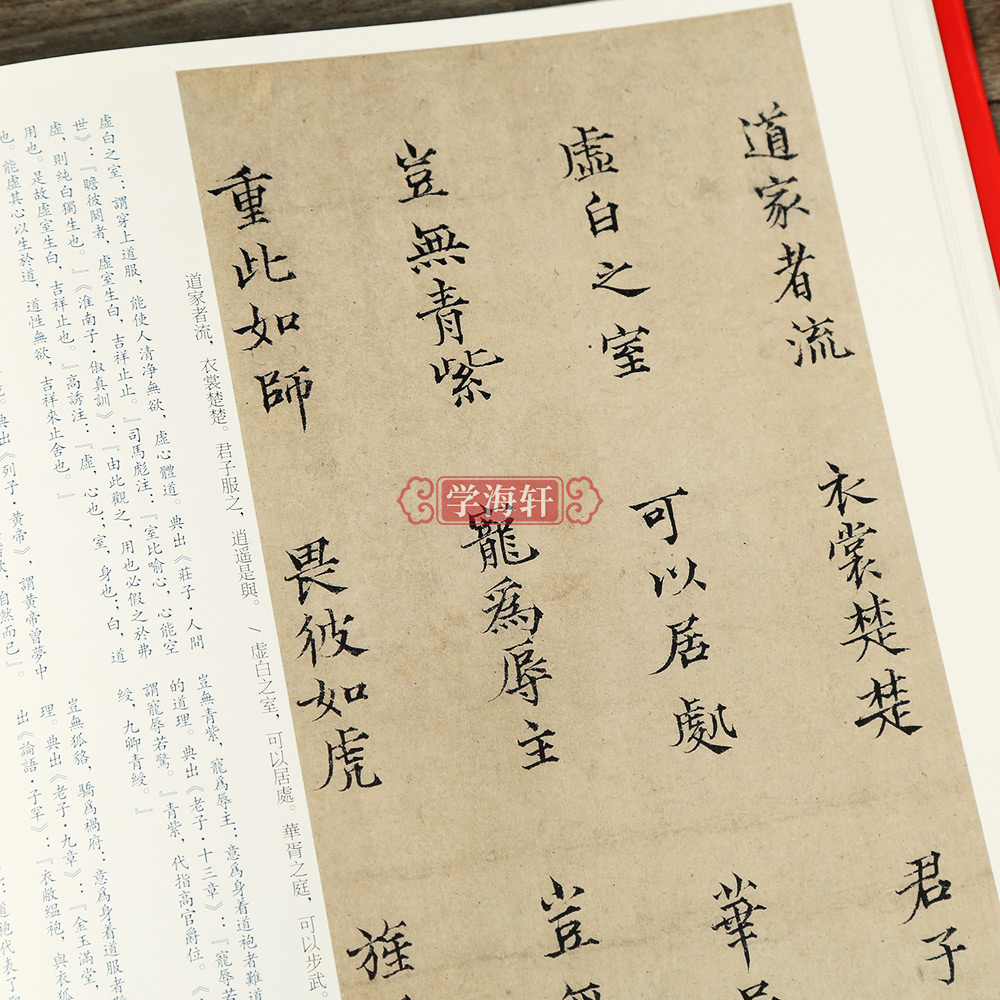 道家者流 衣裳楚楚 君子
虛白之室 可以居處 華
豈無青紫 寵爲辱主 豈無
重此如師 畏彼如虎 旌
学海轩
道家者流，衣裳楚楚。君子服之，逍遥是與。 \ 虛白之室，可以居處。華胥之庭，可以步武。
虛白之室：謂穿上道服，能使人清净無欲，虛心體道。典出《莊子·人間
世》：『瞻彼闋者，虛室生白，吉祥止止。』司馬彪注：『室比喻心，心能空
虛，則純白獨生也。』《淮南子·俶真訓》：『由此觀之，用也必假之於弗
用也。是故虛室生白，吉祥止也。』高誘注：『虛，心也；室，身也；白，道
也。能虛其心以生於道，道性無欲，吉祥來止舍也。』
典出《列子·黄帝》，謂黄帝曾夢中
自然而已』。
豈無青紫，寵爲辱主：意爲身着道袍者難道
的道理。典出《老子·十三章》：『寵辱
謂寵辱若驚。』青紫，代指高官爵位。
綬，九卿青綬。』
豈無狐貉，驕爲禍府：意爲身着道服者
理。典出《老子·九章》：『金玉滿堂，
出《論語·子罕》：『衣敝緼袍，與衣狐
道袍代表了